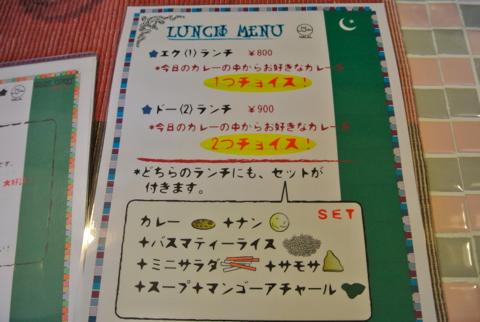 LUNCH MENU
★エク(1)ランチ ¥800
*今日のカレーの中からお好きなカレーを
1つチョイス!
★ドー(2)ランチ ¥900
*今日のカレーの中からお好きなカレーを
2つチョイス!
*どちらのランチにも、セットが
付きます。
SET
カレー +ナン
+バスマティーライス
+ミニサラダ +サモサ
+スープ+マンゴーアチャール